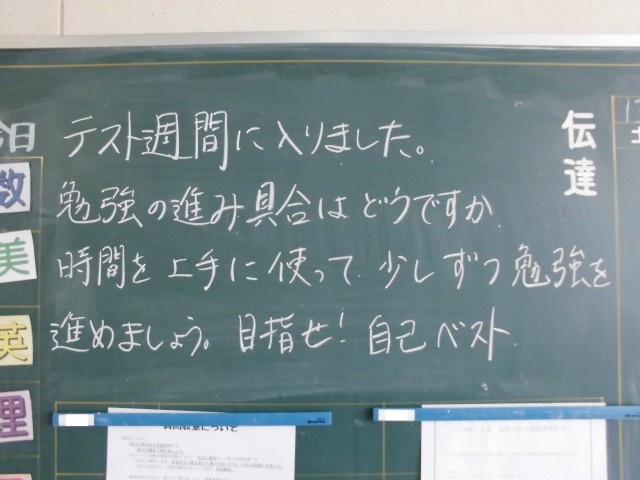 今日
テスト週間に入りました。
勉強の進み具合はどうですか
時間を上手に使って 少しずつ勉強を
進めましょう。目指せ！自己ベスト
伝達
数
美
英
理
質問教室について